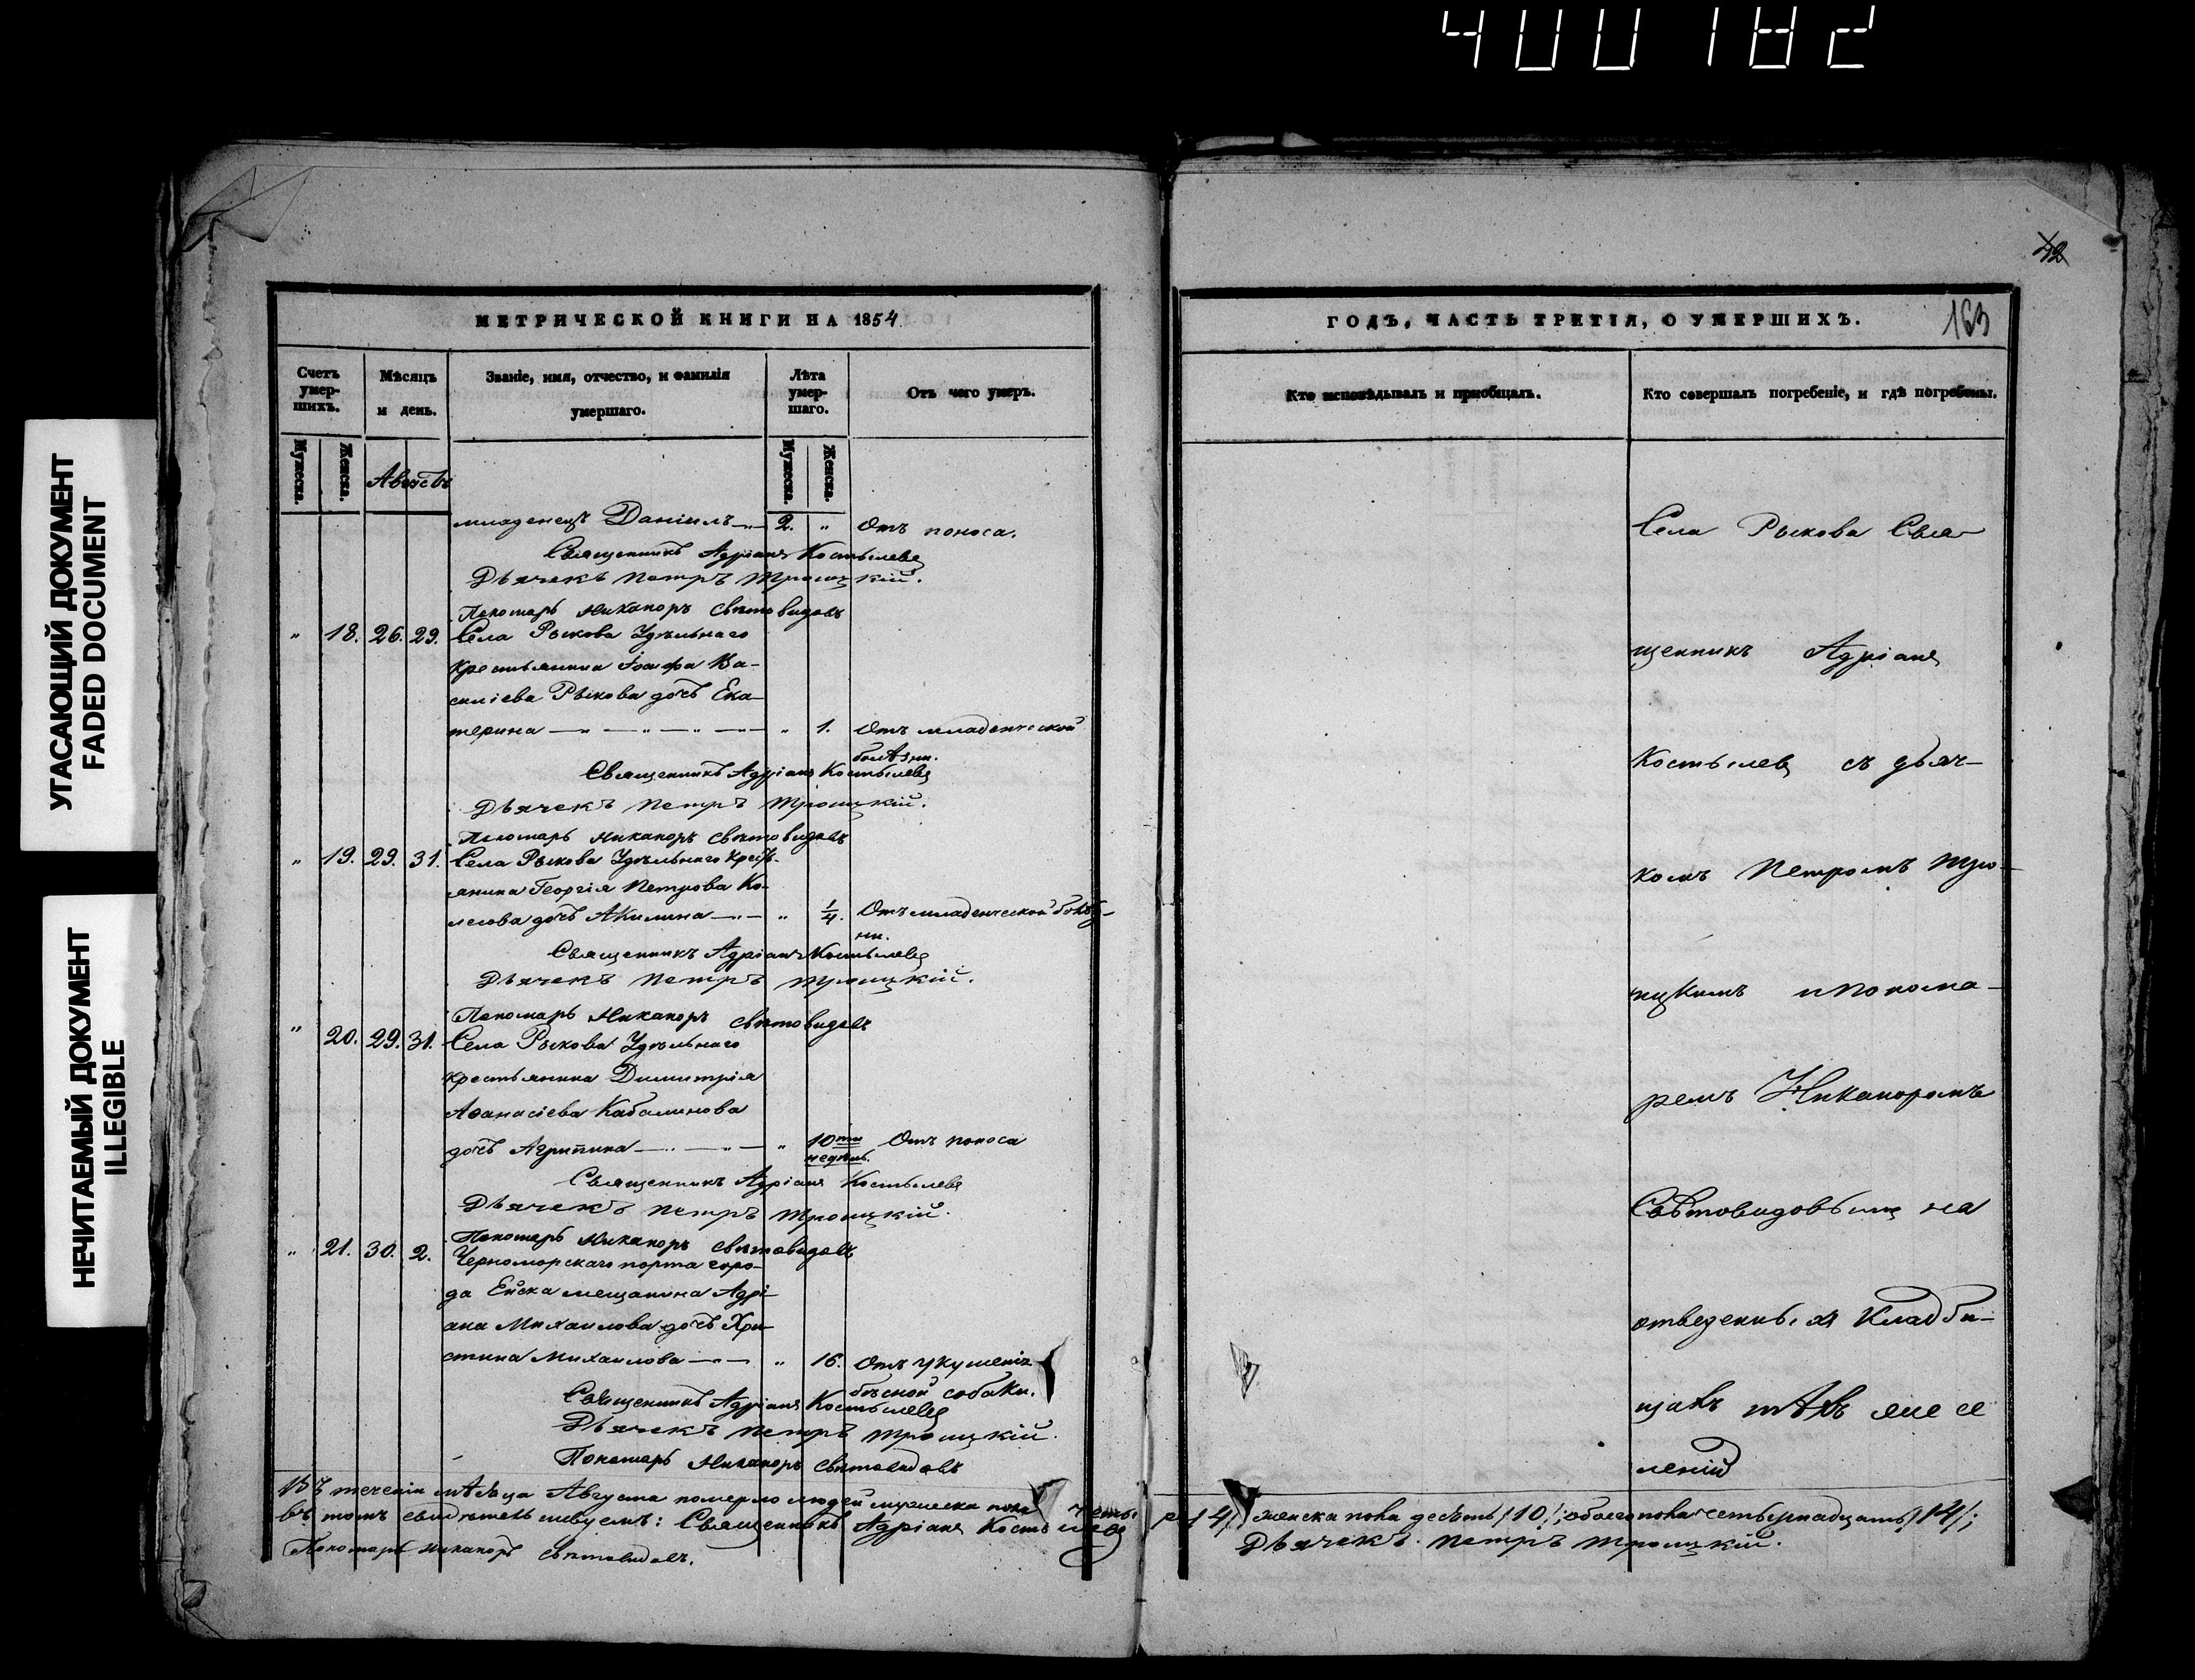 400182
УГАСАЮЩИЙ ДОКУМЕНТ
FADED DOCUMENT
НЕЧИТАЕМЫЙ ДОКУМЕНТ
ILLEGIBLE
МЕТРИЧЕСКОЙ КНИГИ НА 1854
Счетъ умер-шихъ.
Мѣсяцъ и день.
Званіе, имя, отчество, и фамилія умершаго.
Лѣта умер-шаго.
Отъ чего умеръ.
Мужеска.
Женска.
Мужеска.
Женска.
младенецъ Даніилъ 2. " Отъ поноса.
Священникъ Адріанъ Костылевъ
Дьячекъ Петръ Троицкій.
Пономарь Никаноръ Свѣтовидовъ
" 18. 26. 29. Села Рыкова Удѣльнаго
крестьянина Іоасафа Ва-
силіева Рыкова дочь Ека-
терина " 1. Отъ младенческой
болѣзни.
Священникъ Адріанъ Костылевъ
Дьячекъ Петръ Троицкій.
Пономарь Никаноръ Свѣтовидовъ
" 19. 29. 31. Села Рыкова Удѣльнаго крест-
янина Георгія Петрова Ко-
лесова дочь Акилина " 1/4. Отъ младенческой болѣз-
ни.
Священникъ Адріанъ Костылевъ
Дьячекъ Петръ Троицкій.
Пономарь Никаноръ Свѣтовидовъ
" 20. 29. 31. Села Рыкова Удѣльнаго
крестьянина Димитрія
Аѳанасіева Кабалинова
дочь Агрипина " 10ти недѣль. Отъ поноса
Священникъ Адріанъ Костылевъ
Дьячекъ Петръ Троицкій.
Пономарь Никаноръ Свѣтовидовъ
" 21. 30. 2. Черноморскаго порта горо-
да Ейска мещанина Адрі-
ана Михаилова дочь Хри-
стина Михаилова " 16. Отъ укушенія
бѣсной собаки.
Священникъ Адріанъ Костылевъ
Дьячекъ Петръ Троицкій.
Пономарь Никаноръ Свѣтовидовъ
42
ГОДЪ, ЧАСТЬ ТРЕТІЯ, О УМЕРШИХЪ.
163
Кто исповѣдывалъ и пріобщалъ.
Кто совершалъ погребеніе, и гдѣ погребены.
Села Рыкова Свя-
щенникъ Адріанъ
Костылевъ съ дьяч-
комъ Петромъ Тро-
ицкимъ и понома-
ремъ Никаноромъ
Свѣтовидовымъ на
отведенныхъ кладби-
щахъ тѣхъ же се
леній
Въ теченіи мѣсяца Августа померло людей мужеска пола четы-
ре /4/, женска пола десять /10/; обоего пола четырнадцать /14/;
въ томъ свидѣтельствуемъ: Священникъ Адріанъ Костылевъ
Дьячекъ Петръ Троицкій.
Пономарь Никаноръ Свѣтовидовъ.